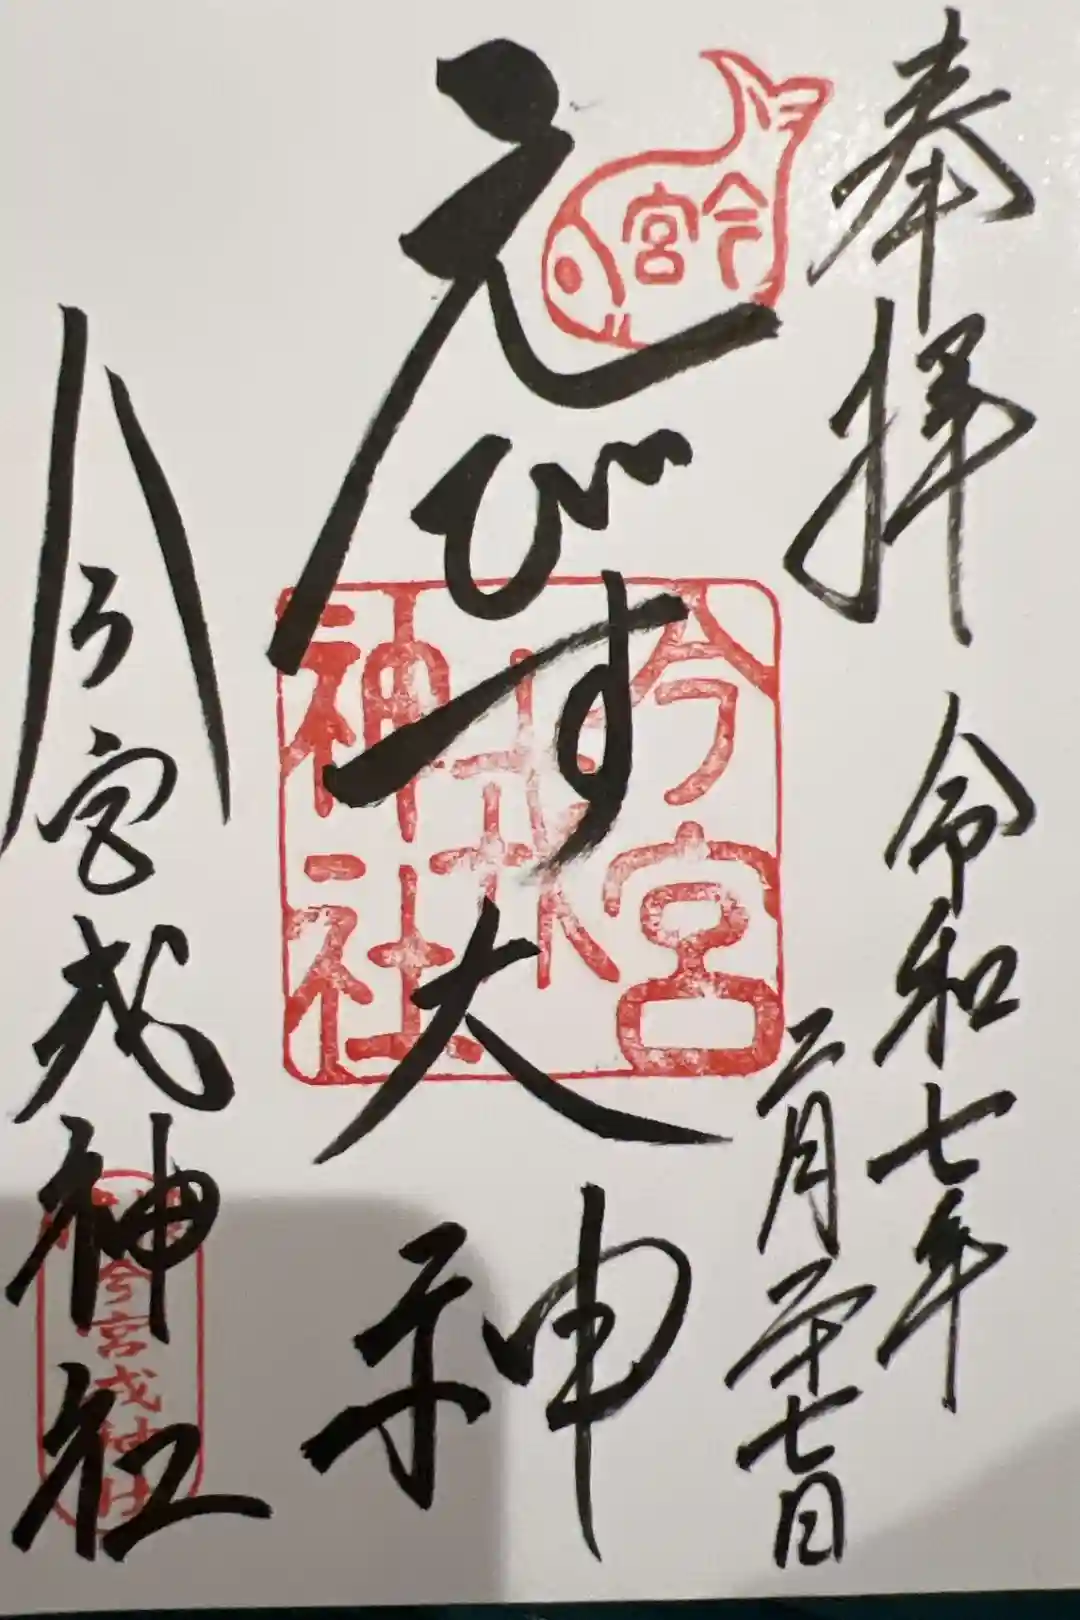 奉拝
令和七年
二月二十七日
今宮
えびす大神
今宮
戎
神社
今宮戎神社
今宮戎神社